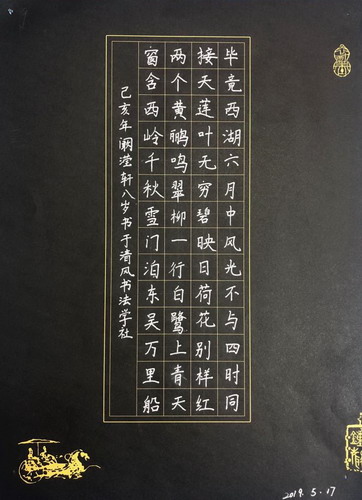 毕竟西湖六月中风光不与四时同
接天莲叶无穷碧映日荷花别样红
两个黄鹂鸣翠柳一行白鹭上青天
窗含西岭千秋雪门泊东吴万里船
己亥年阚滢轩八岁书于清风书法学社
2019.5.17